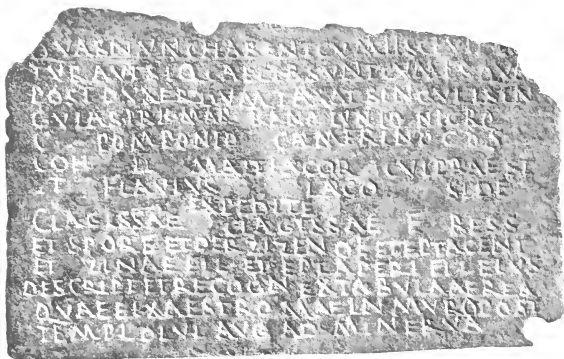 QVAS NVNC HABENT CVM
TVR AVT SI Q CAELIB SVNT CVM
POST DVXER DVMTAXAT SINGVLIS SIN
GVLAS PR K MAR IVNIO NIGRO
C POMPONIO CAMERINO COS
COH II MATTIACOR CVI PRAEEST
T FLAVIVS LACO SIDE
EX PEDITE
CLAGISSAE CLAGISSAE F BESS
ET SPORE ET DERZIZEN ET EPTACENT
ET ZINAE FIL ET EPTAPERI FIL EIVS
DESCRIPT ET RECOGN EX TABVLA AEREA
QVAE FIXA EST ROMAE IN MVRO POST
TEMPL DIVI AVG AD MINERVA